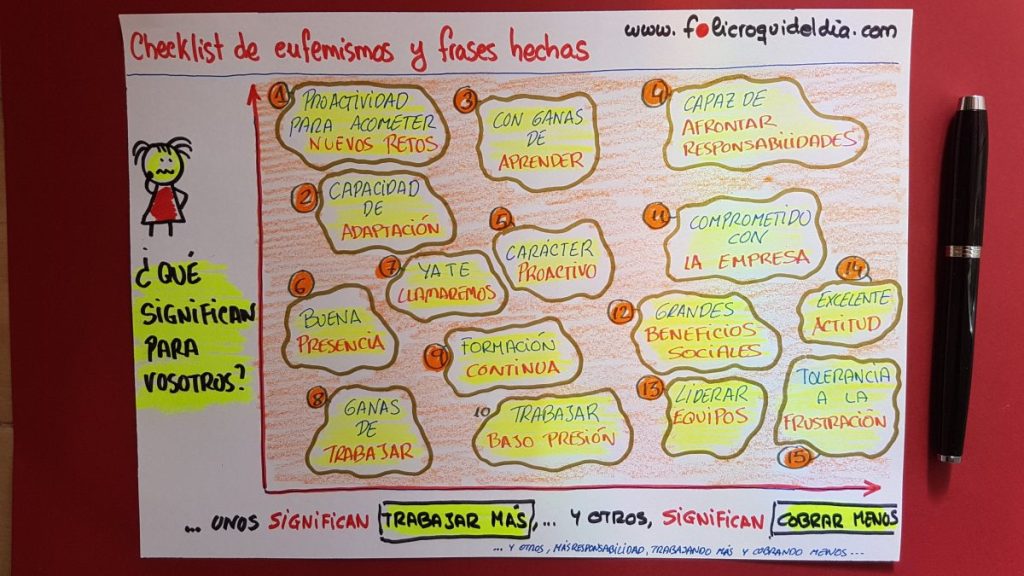 Checklist de eufemismos y frases hechas
www.folicroquideldia.com
1
PROACTIVIDAD
PARA ACOMETER
NUEVOS RETOS
2
CAPACIDAD
DE
ADAPTACIÓN
3
CON GANAS
DE
APRENDER
4
CAPAZ DE
AFRONTAR
RESPONSABILIDADES
5
CARÁCTER
PROACTIVO
6
BUENA
PRESENCIA
7
YA TE
LLAMAREMOS
8
GANAS
DE
TRABAJAR
9
FORMACIÓN
CONTINUA
10
TRABAJAR
BAJO PRESIÓN
11
COMPROMETIDO
CON
LA EMPRESA
12
GRANDES
BENEFICIOS
SOCIALES
13
LIDERAR
EQUIPOS
14
EXCELENTE
ACTITUD
15
TOLERANCIA
A LA
FRUSTRACIÓN
¿QUÉ
SIGNIFICAN
PARA
VOSOTROS?
... UNOS SIGNIFICAN TRABAJAR MÁS,... Y OTROS, SIGNIFICAN COBRAR MENOS
... Y OTROS, MÁS RESPONSABILIDAD, TRABAJANDO MÁS Y COBRANDO MENOS...